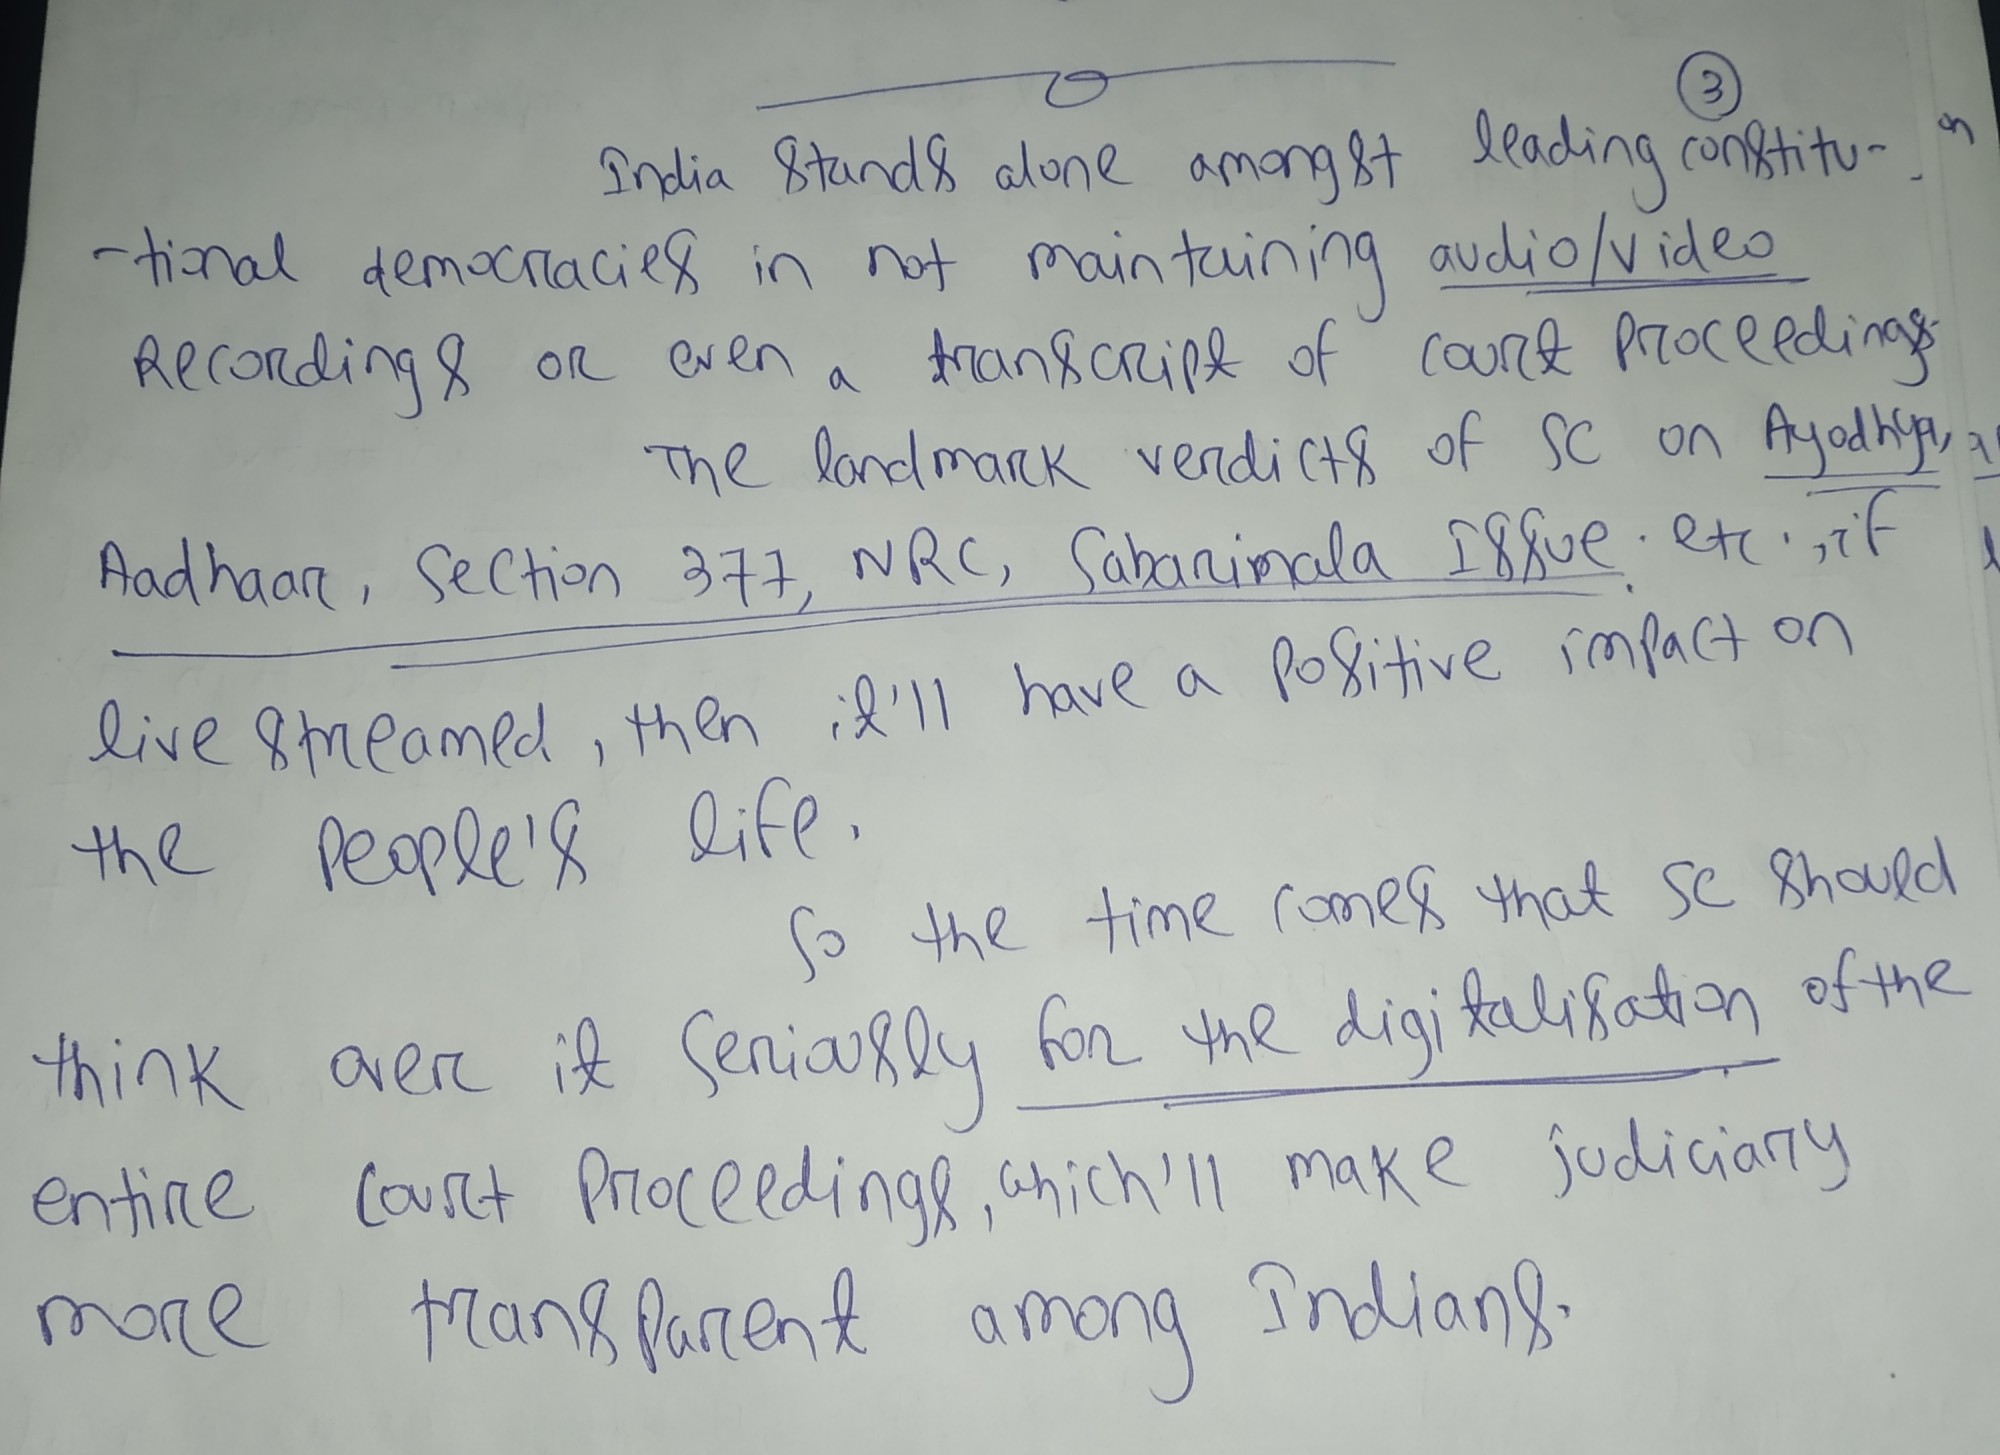 3
India stands alone amongst leading constitu-
-tional democracies in not maintaining audio/video
Recordings or even a transcript of court proceedings.
The landmark verdicts of SC on Ayodhya,
Aadhaar, Section 377, NRC, Sabarimala Issue. etc., if
live streamed, then it'll have a positive impact on
the people's life.
So the time comes that SC should
think over it seriously for the digitalisation of the
entire court proceedings, which'll make judiciary
more transparent among Indians.